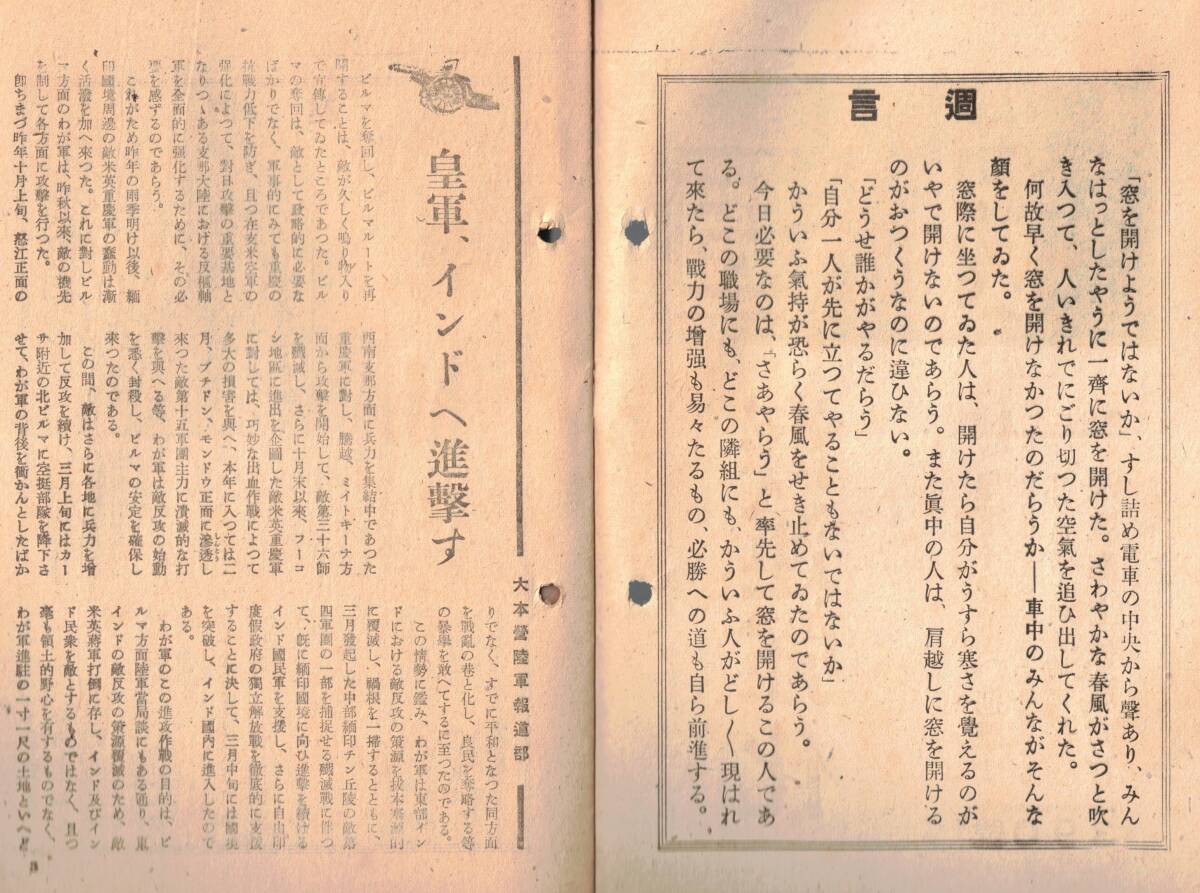 週言
「窓を開けようではないか」、すし詰め電車の中央から聲あり、みん
なはっとしたやうに一齊に窓を開けた。さわやかな春風がさつと吹
き入つて、人いきれでにごり切つた空氣を追ひ出してくれた。
何故早く窓を開けなかつたのだらうか――車中のみんながそんな
顏をしてゐた。
窓際に坐つてゐた人は、開けたら自分がうすら寒さを覺えるのが
いやで開けないのであらう。また眞中の人は、肩越しに窓を開ける
のがおつくうなのに違ひない。
「どうせ誰かがやるだらう」
「自分一人が先に立つてやることもないではないか」
かういふ氣持が恐らく春風をせき止めてゐたのであらう。
今日必要なのは、「さあやらう」と率先して窓を開けるこの人であ
る。どこの職場にも、どこの隣組にも、かういふ人がどし〱現はれ
て來たら、戰力の增强も易々たるもの、必勝への道も自ら前進する。
皇軍、インドへ進擊す
大本營陸軍報道部
ビルマを奪回し、ビルマルートを再
開することは、敵が久しく鳴り物入り
で宣傳してゐたところであつた。ビル
マの奪回は、敵として政略的に必要な
ばかりでなく、軍事的にみても重慶の
抗戰力低下を防ぎ、且つ在支米空軍の
强化によつて、對日攻擊の重要基地と
なりつゝある支那大陸における反樞軸
軍を全面的に强化するために、その必
要を感ずるのであらう。
これがため昨年の雨季明け以後、緬
印國境周邊の敵米英重慶軍の蠢動は漸
く活潑を加へ來つた。これに對しビル
マ方面のわが軍は、昨秋以來、敵の機先
を制して各方面に攻擊を行つた。
卽ちまづ昨年十月上旬、怒江正面の
西南支那方面に兵力を集結中であつた
重慶軍に對し、騰越、ミイトキーナ方
面から攻擊を開始して、敵第三十六師
を殲滅し、さらに十月末以來、フーコ
ン地區に進出を企圖した敵米英重慶軍
に對しては、巧妙な出血作戰によつて
多大の損害を與へ、本年に入つては二
月、ブチドン、モンドウ正面に滲透し
來つた敵第十五軍團主力に潰滅的な打
擊を與へる等、わが軍は敵反攻の始動
を悉く封殺し、ビルマの安定を確保し
來つたのである。
この間、敵はさらに各地に兵力を增
加して反攻を續け、三月上旬にはカー
サ附近の北ビルマに空挺部隊を降下さ
せて、わが軍の背後を衝かんとしたばか
りでなく、すでに平和となつた同方面
を戰亂の巷と化し、良民を奪略する等
の暴擧を敢へてするに至つたのである。
この情勢に鑑み、わが軍は東部イン
ドにおける敵反攻の策源を拔本塞源的
に覆滅し、禍根を一掃するとともに、
三月發起した中部緬印チン丘陵の敵第
四軍團の一部を捕捉せる殲滅戰に伴つ
て、旣に緬印國境に向ひ進擊を續ける
インド國民軍を支援し、さらに自由印
度假政府の獨立解放戰を徹底的に支援
することに決して、三月中旬には國境
を突破し、インド國內に進入したので
ある。
わが軍のこの進攻作戰の目的は、ビ
ルマ方面陸軍當局談にもある通り、東
インドの敵反攻の策源覆滅のため、敵
米英蔣軍打倒に存し、インド及びイン
ド民衆を敵とするものではなく、且つ
毫も領土的野心を有するものでなく、
わが軍進駐の一寸一尺の土地といへど